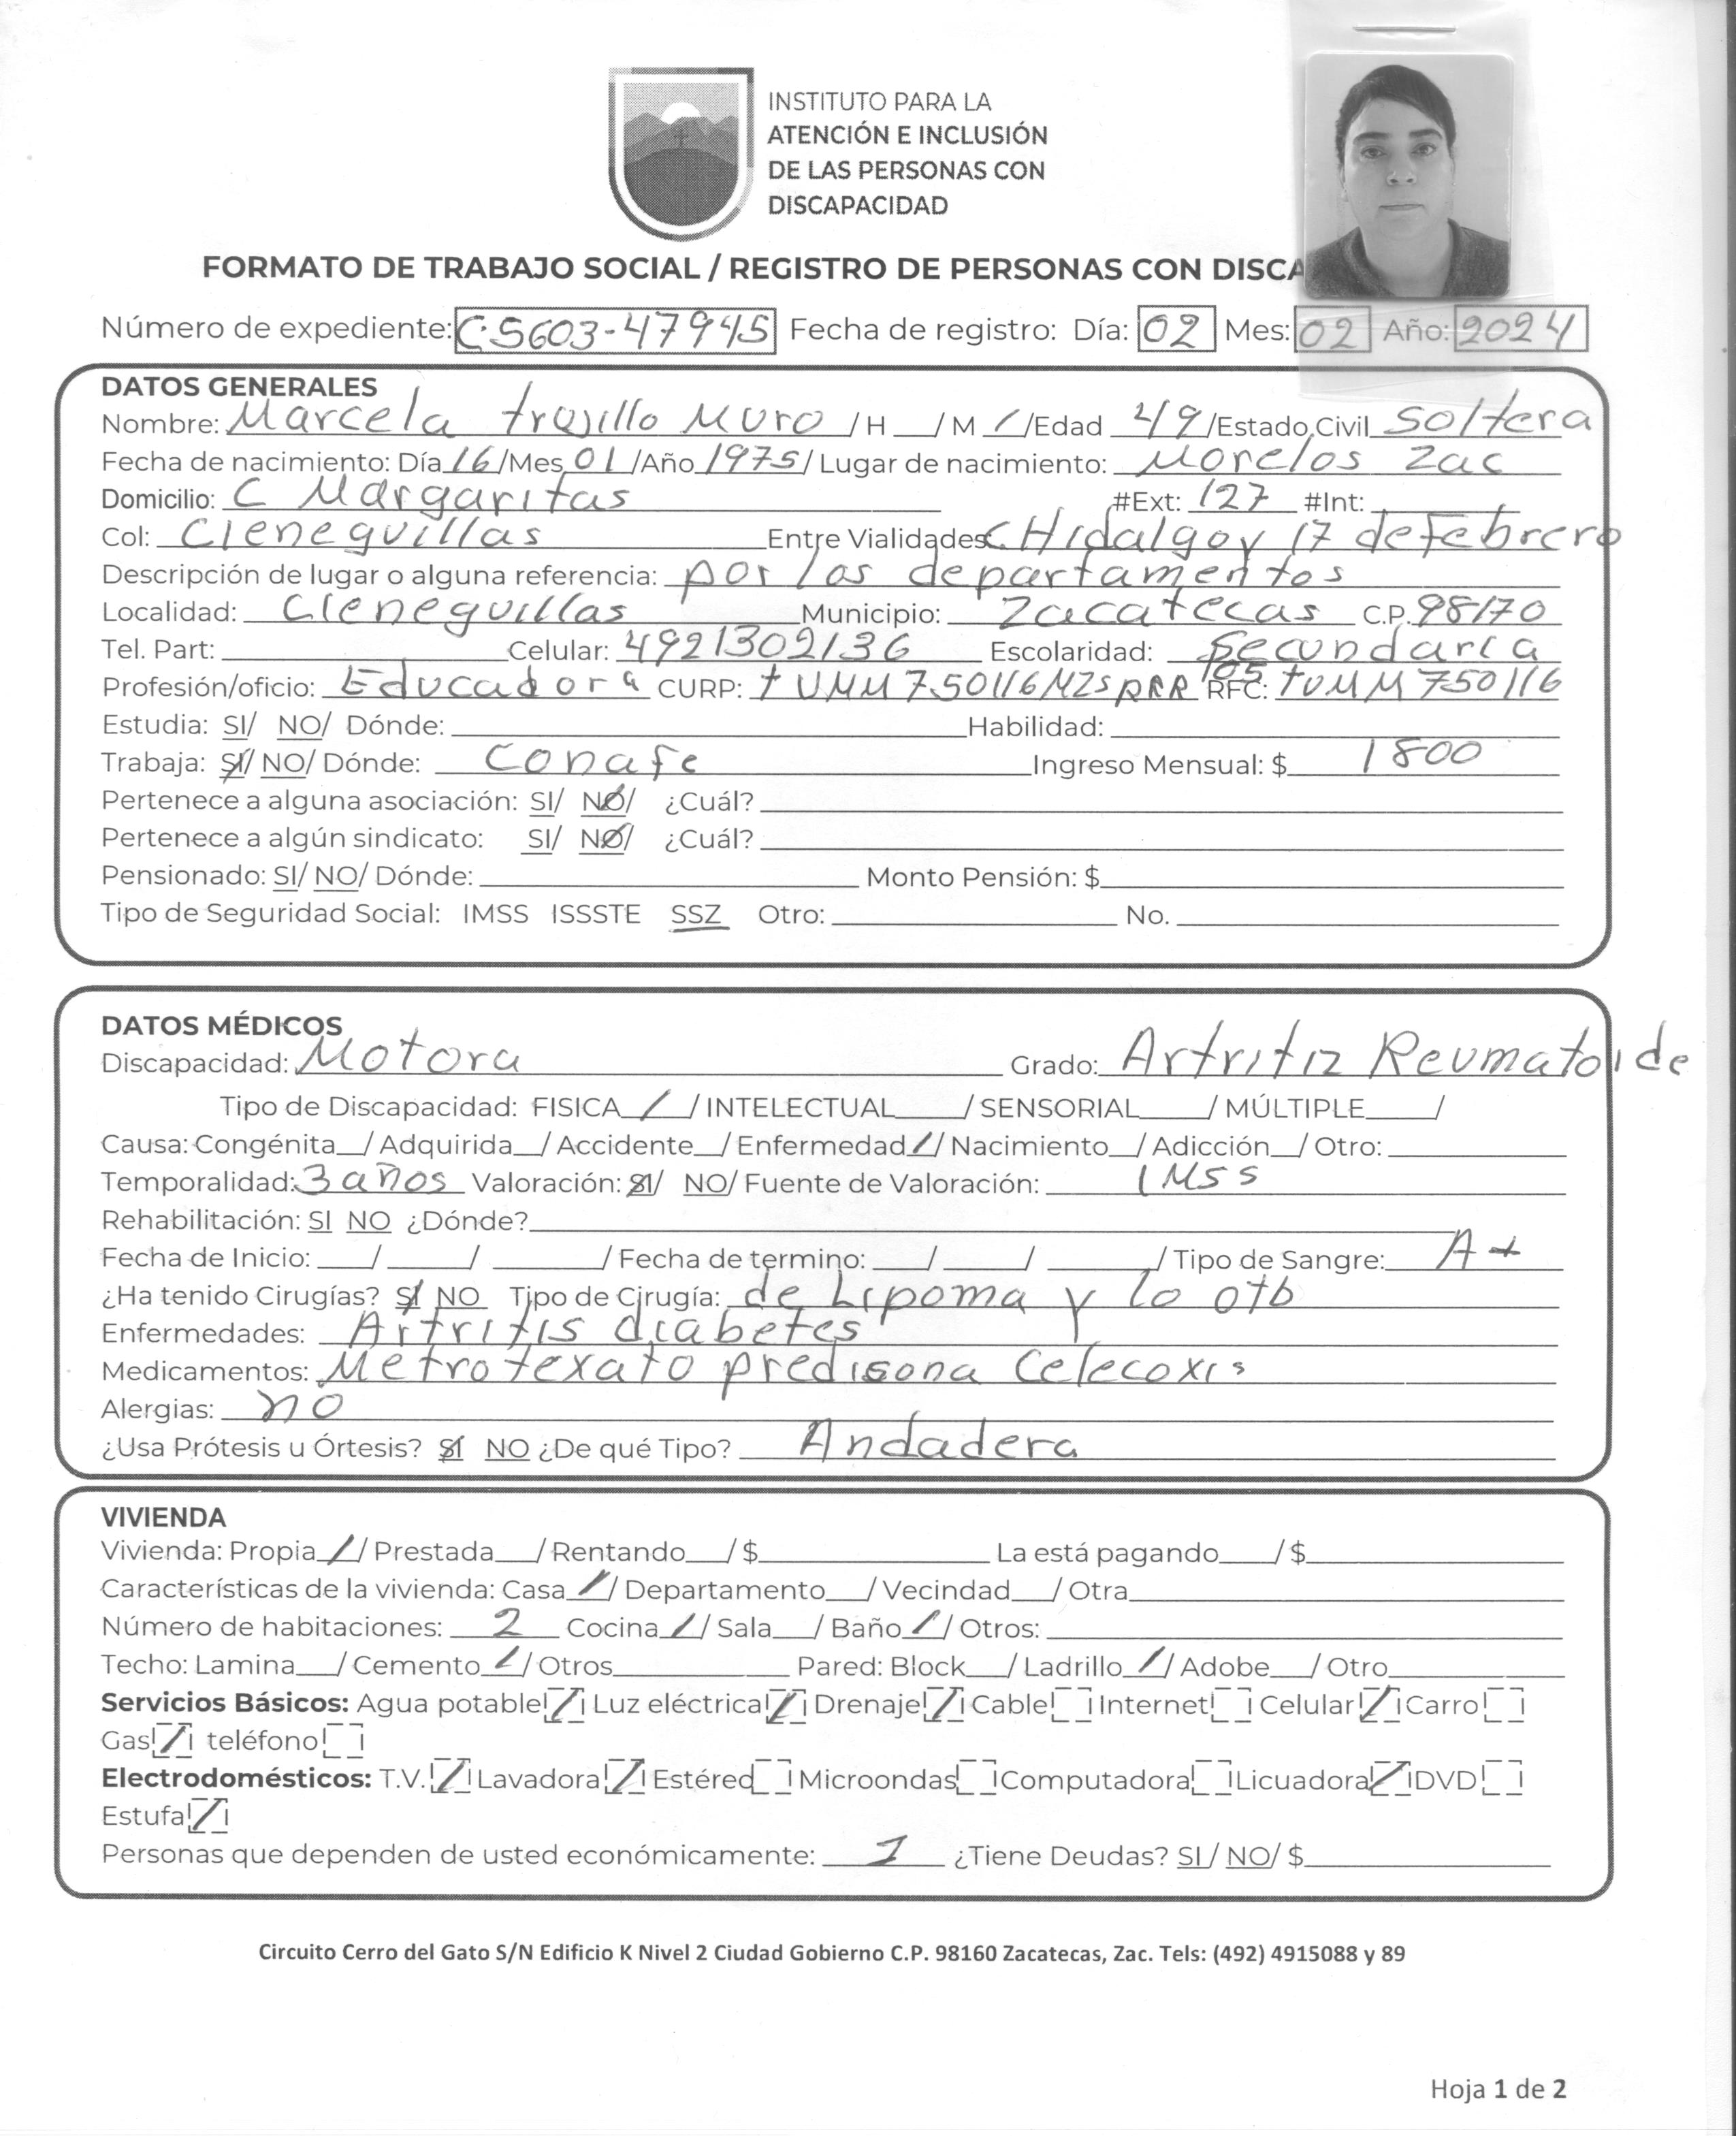 INSTITUTO PARA LA
ATENCIÓN E INCLUSIÓN
DE LAS PERSONAS CON
DISCAPACIDAD
FORMATO DE TRABAJO SOCIAL / REGISTRO DE PERSONAS CON DISCA
Número de expediente: CS603-47945 Fecha de registro: Día: 02 Mes: 02 Año: 2024
DATOS GENERALES
Nombre: Marcela trujillo Muro / H __/ M / /Edad 49 /Estado Civil Soltera
Fecha de nacimiento: Día 16 /Mes 01 /Año 1975 / Lugar de nacimiento: Morelos Zac
Domicilio: C Margaritas #Ext: 127 #Int:
Col: Cieneguillas Entre Vialidades C. Hidalgo y 17 de Febrero
Descripción de lugar o alguna referencia: por los departamentos
Localidad: Cieneguillas Municipio: Zacatecas C.P. 98170
Tel. Part: Celular: 4921302136 Escolaridad: Secundaria
Profesión/oficio: Educadora CURP: tUMM750116MZSRRR05 RFC: tUMM750116
Estudia: SI/ NO/ Dónde: Habilidad:
Trabaja: SI/ NO/ Dónde: Conafe Ingreso Mensual: $ 1800
Pertenece a alguna asociación: SI/ NO/ ¿Cuál?
Pertenece a algún sindicato: SI/ NO/ ¿Cuál?
Pensionado: SI/ NO/ Dónde: Monto Pensión: $
Tipo de Seguridad Social: IMSS ISSSTE SSZ Otro: No.
DATOS MÉDICOS
Discapacidad: Motora Grado: Artritiz Reumatoide
Tipo de Discapacidad: FISICA / / INTELECTUAL / SENSORIAL / MÚLTIPLE /
Causa: Congénita / Adquirida / Accidente / Enfermedad / / Nacimiento / Adicción / Otro:
Temporalidad: 3 años Valoración: SI/ NO/ Fuente de Valoración: IMSS
Rehabilitación: SI NO ¿Dónde?
Fecha de Inicio: / / / Fecha de termino: / / / Tipo de Sangre: A+
¿Ha tenido Cirugías? SI NO Tipo de Cirugía: de Lipoma y lo otb
Enfermedades: Artritis diabetes
Medicamentos: Metrotexato predisona Celecoxis
Alergias: no
¿Usa Prótesis u Órtesis? SI NO ¿De qué Tipo? Andadera
VIVIENDA
Vivienda: Propia / / Prestada / Rentando / $ La está pagando / $
Características de la vivienda: Casa / / Departamento / Vecindad / Otra
Número de habitaciones: 2 Cocina / / Sala / Baño / / Otros:
Techo: Lamina / Cemento / / Otros Pared: Block / Ladrillo / / Adobe / Otro
Servicios Básicos: Agua potable / Luz eléctrica / Drenaje / Cable Internet Celular / Carro
Gas / teléfono
Electrodomésticos: T.V. / Lavadora / Estéreo Microondas Computadora Licuadora / DVD
Estufa /
Personas que dependen de usted económicamente: 1 ¿Tiene Deudas? SI / NO/ $
Circuito Cerro del Gato S/N Edificio K Nivel 2 Ciudad Gobierno C.P. 98160 Zacatecas, Zac. Tels: (492) 4915088 y 89
Hoja 1 de 2